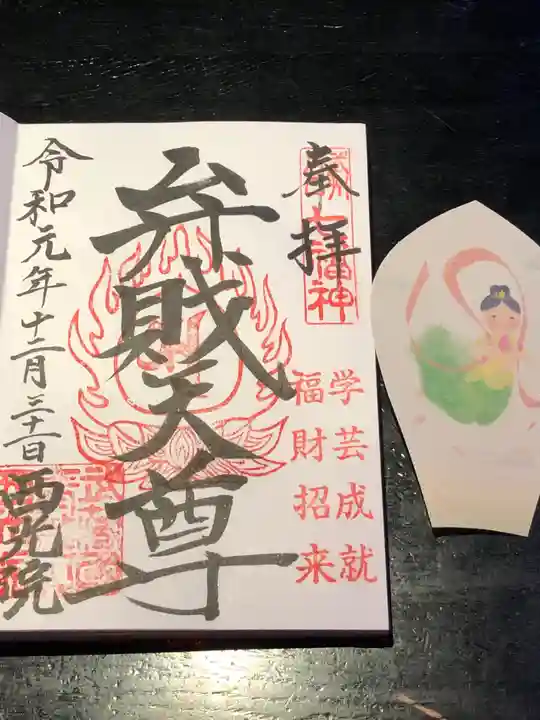 奉拝
七福神
学芸成就
福財招来
弁賎天尊
令和元年十二月三十一日
西光院